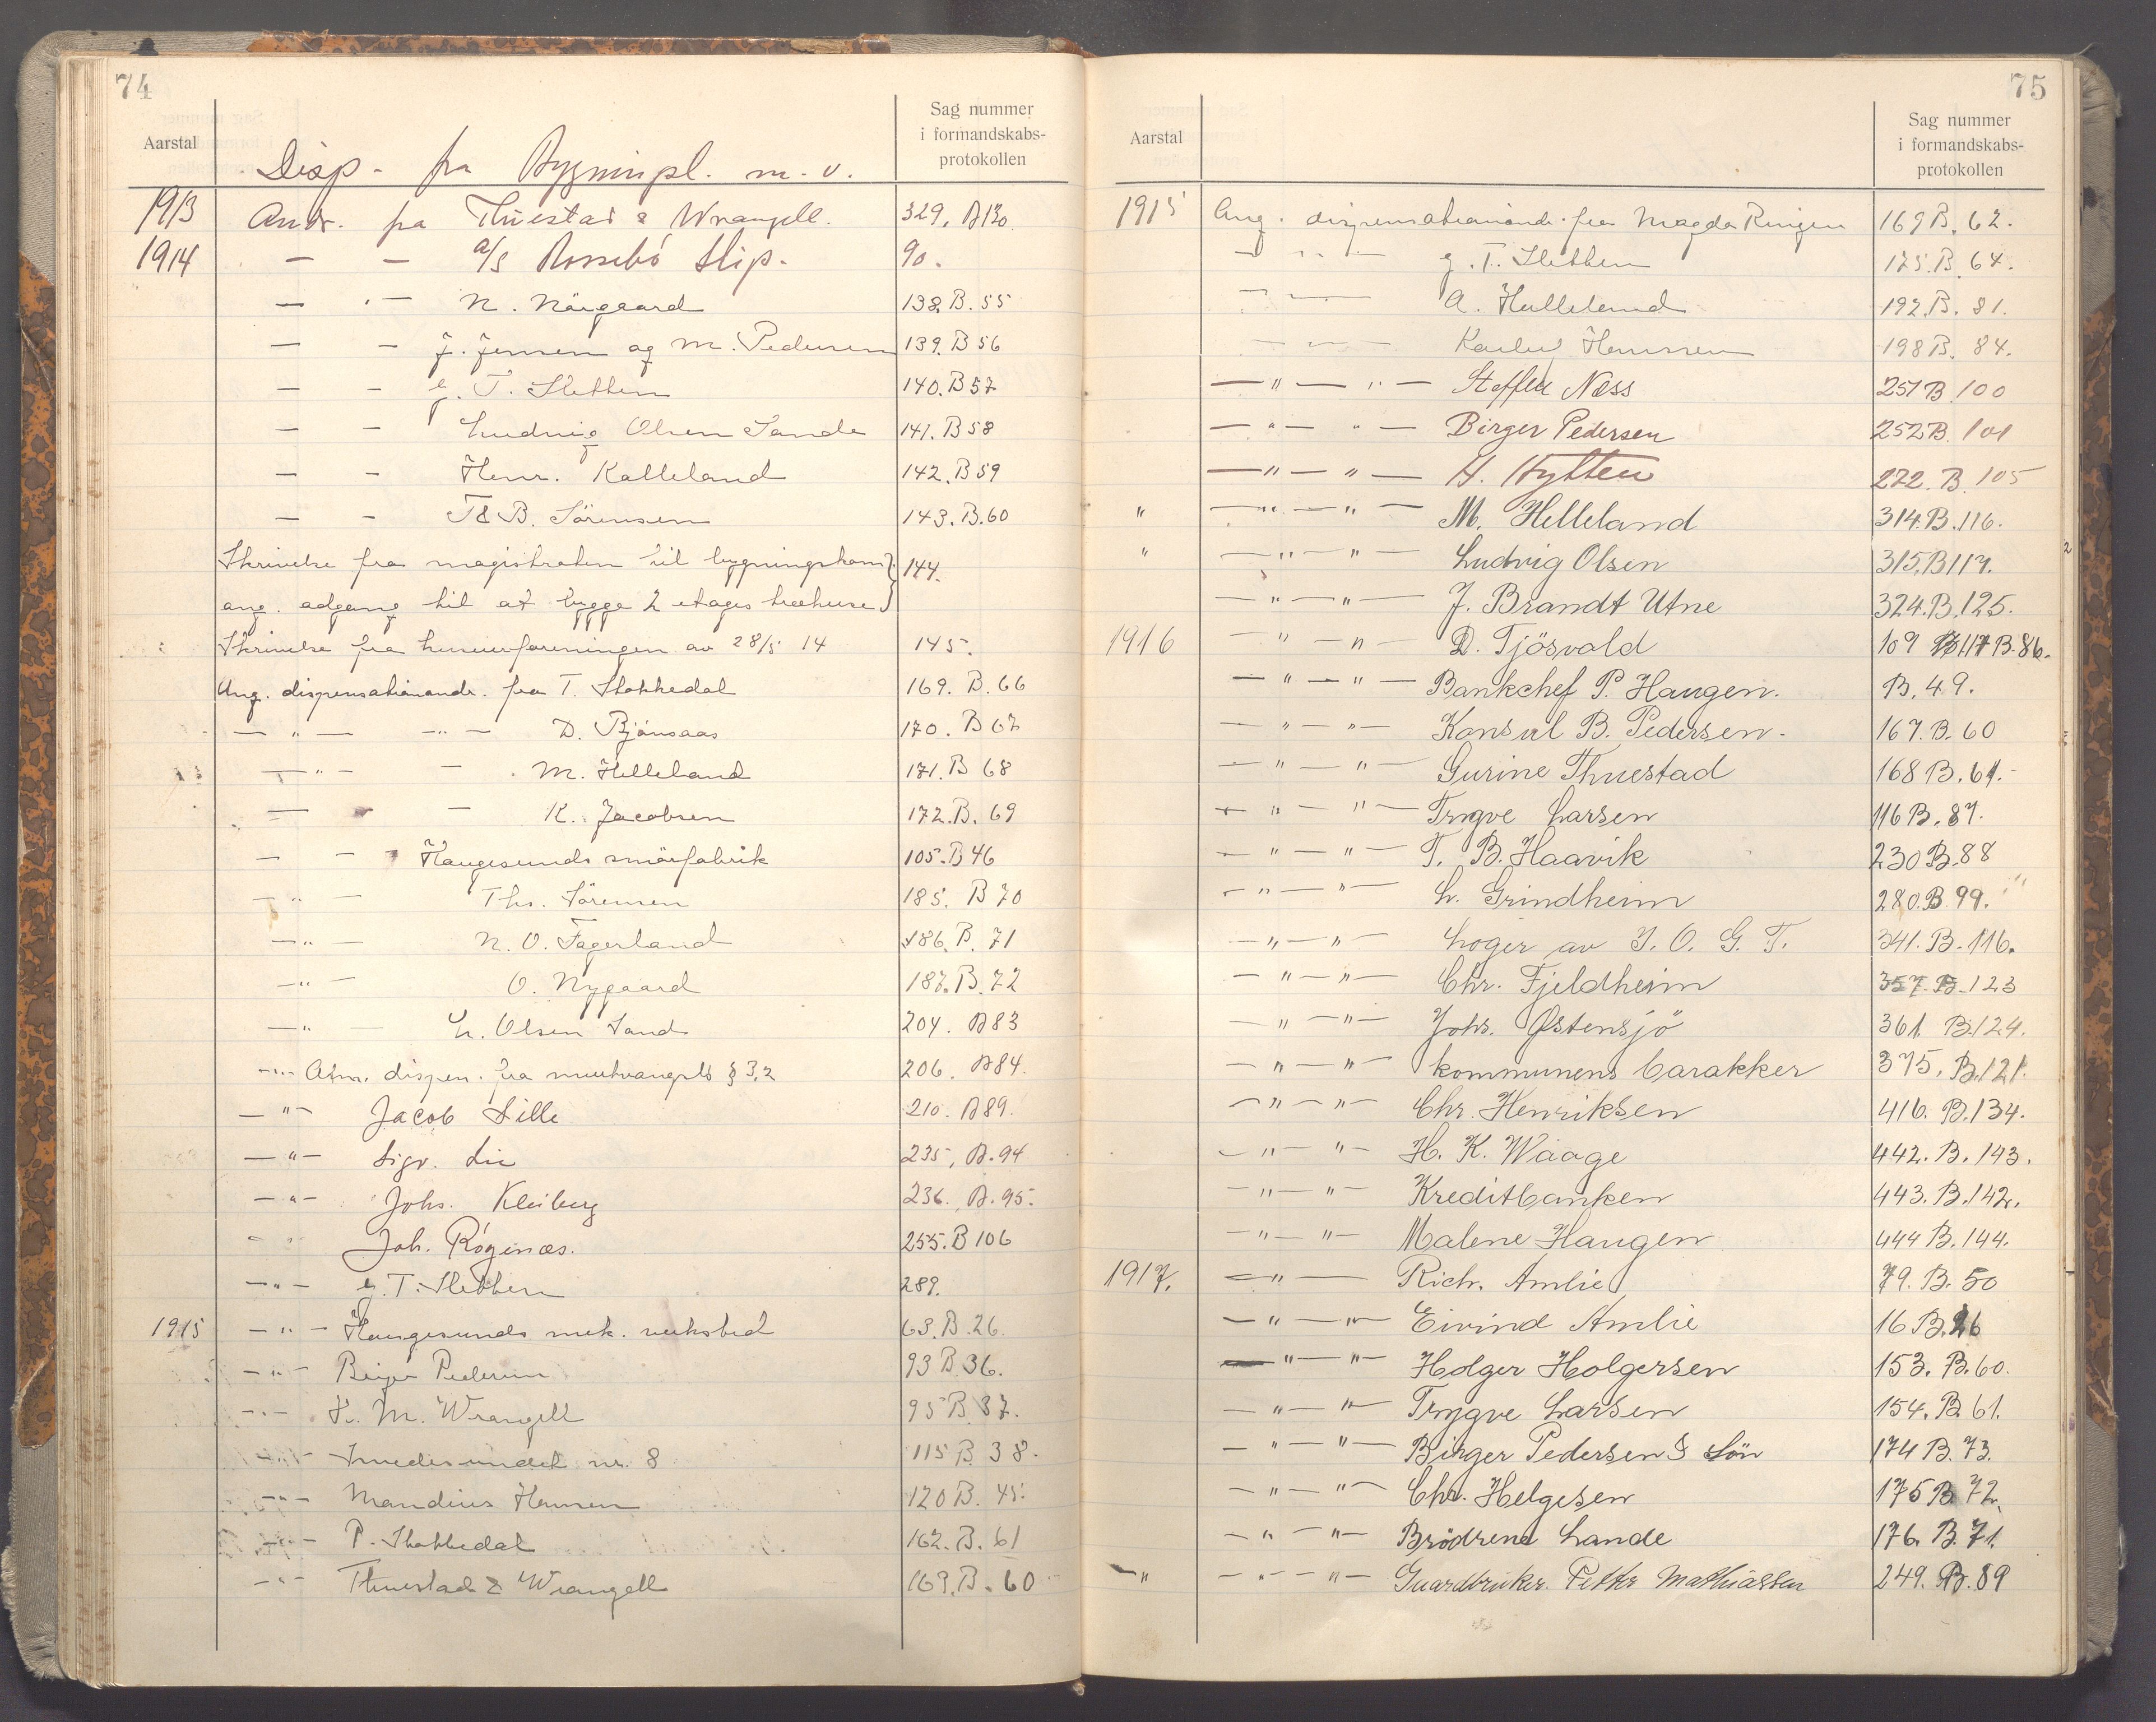 74
Aarstal
Sag nummer
i formandskabs-
protokollen
Disp. fra Bygningspl. m. v.
1913 Andr. fra Thuestad & Wrangell. 329, B130.
1914 — — a/s Rossebö Slip. 90.
— „ — N. Nörgaard 138. B. 55
— — J. Jensen og M. Pedersen 139. B 56
— — G. T. Sletten 140. B 57
— — Ludvig Olsen Sande 141. B 58
— — Henr. Kalleland 142. B 59
— — T & B. Sörensen 143. B. 60
Skrivelse fra magistraten til bygningskom.
ang. adgang til at bygge 2 etages træhuse 144.
Skrivelse fra huseierforeningen av 28/5 14 145.
Ang. dispensationandr. fra T. Stakkedal 169. B. 66
— „ — — „ — D. Bjönsaas 170. B 67
— „ — — M. Helleland 171. B 68
— — K. Jacobsen 172. B. 69
— — Haugesunds smörfabrik 105. B 46
— „ — Ths. Sörensen 185. B 70
— „ — N. O. Fagerland 186. B. 71
— „ — O. Nygaard 187. B. 72
— „ — L. Olsen Sande 204. B 83
— „ — Alm. dispen. fra murtvangsls § 3,2 206. B 84.
— „ — Jacob Lille 210. B 89.
— „ — Sigv. Lie 235, B. 94
— „ — Johs. Kleiberg 236. B. 95.
„ Joh. Röginæs. 255. B 106
— „ — G. T. Sletten 289.
1915 — „ — Haugesunds mek. verksted 63. B. 26.
— „ — Birger Pedersen 93 B. 36.
— „ — H. M. Wrangell 95 B. 37.
— „ — Smedesundet nr. 8 115 B. 38.
— „ — Mandius Hansen 120 B. 45.
— „ — P. Stakkedal 162. B. 61
— „ — Thuestad & Wrangell 169. B. 60
75
Aarstal
Sag nummer
i formandskabs-
protokollen
1915 Ang. dispensationandr. fra Magda Ringen 169 B. 62.
— „ — G. T. Sletten 175. B. 64.
— — A. Helleland 192. B. 81.
— — — Hansen 198 B. 84.
— „ — „ — Steffen Næss 251 B. 100
— „ — „ — Birger Pedersen 252 B. 101
— „ — „ — H. Hytten 272. B. 105
„ — „ — „ — M. Helleland 314. B. 116.
„ — „ — „ — Ludvig Olsen 315. B 117.
— „ — „ — J. Brandt Utne 324. B. 125.
1916 — „ — „ — D. Tjösvold 109 117 B. 86.
— „ — „ — Bankchef P. Haugen. B. 49.
— „ — „ — Konsul B. Pedersen. 167. B. 60
— „ — „ — Gurine Thuestad 168 B. 61.
— „ — „ — Trygve Larsen 116 B. 87.
— „ — „ — T. B. Haavik 230 B. 88
— „ — „ — L. Grindheim 280. B. 99.
— „ — „ — Loger av I. O. G. T. 341. B. 116.
— „ — „ — Chr. Fjeldheim 357. B. 123
— „ — „ — Johs. Østensjö 361. B. 124.
— „ — „ — kommunens barakker 375, B. 121.
— „ — „ — Chr. Henriksen 416. B. 134.
— „ — „ — H. K. Waage 442. B. 143.
— „ — „ — Kreditbanken 443. B. 142.
— „ — „ — Malene Haugen 444 B. 144.
1917. — „ — Rich. Amlie 79. B. 50
— „ — „ — Eivind Amlie 16 B. 26
— „ — „ — Holger Holgersen 153. B. 60.
— „ — „ — Trygve Larsen 154. B. 61.
— „ — „ — Birger Pedersen & Sön 174 B. 73.
— „ — „ — Chr. Helgesen 175 B 72.
— „ — „ — Brödrene Lande 176. B. 71.
— „ — „ — „ — Guardbruker. Petter Mathiassen 249. B. 89